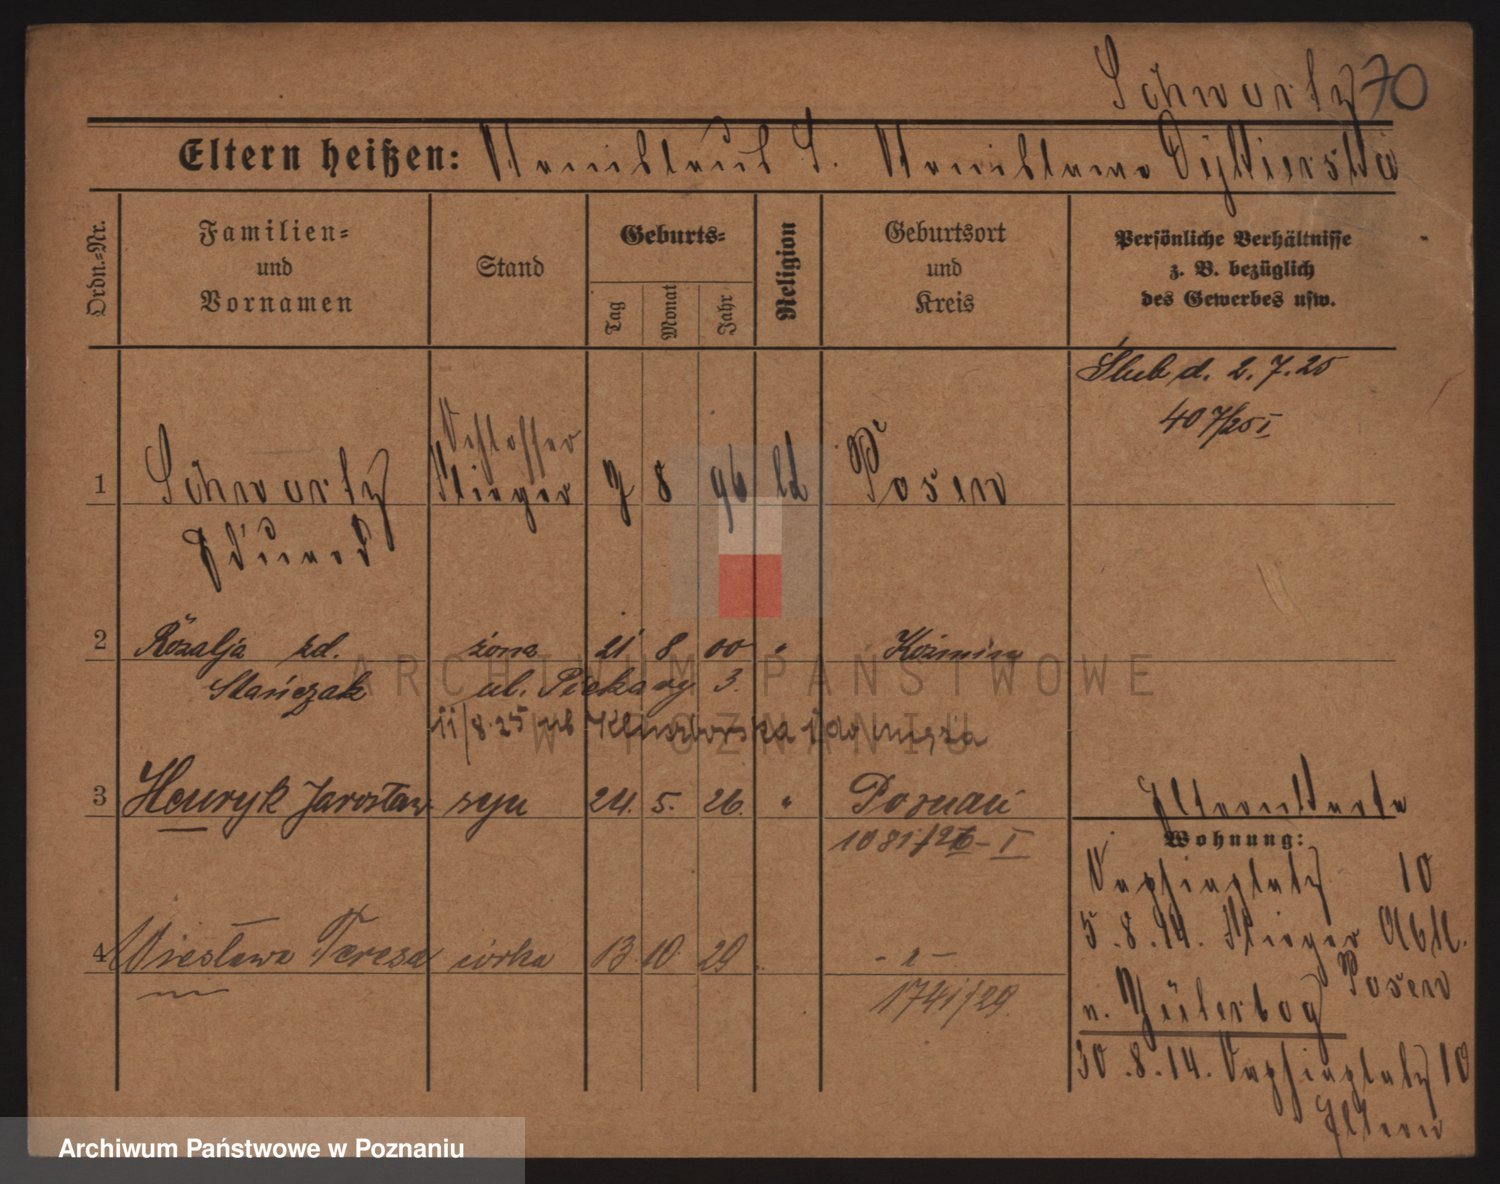 Schwartz 70
Eltern heißen: Stanislaus S. Stanislawa
Ordn.-Nr.
Familien-
und
Vornamen
Stand
Geburts-
Tag
Monat
Jahr
Religion
Geburtsort
und
Kreis
Persönliche Verhältnisse
z. B. bezüglich
des Gewerbes usw.
Ślub d. 2.7.25
407/25 I
Schlosser
1 Schwartz Flieger 7 8 96 kt Posen
Edmund
2 Rozalja zd. żona 21 8 00 " Koźmin
Stańczak ul. Piekary 3.
11/8.25 ul Kluczborska 1 do męża
3 Henryk Jarosław syn 24. 5. 26. " Poznań
1081/26 - I
Elternkarte
Wohnung:
Sapiehaplatz 10
5.8.14. Flieger Abtl.
Posen
4 Wiesława Teresa córka 13 10. 29 - " -
1741/29
n. Jüterbog
30.8.14. Sapiehaplatz 10
Eltern
ARCHIWUM PAŃSTWOWE
W POZNANIU
Archiwum Państwowe w Poznaniu